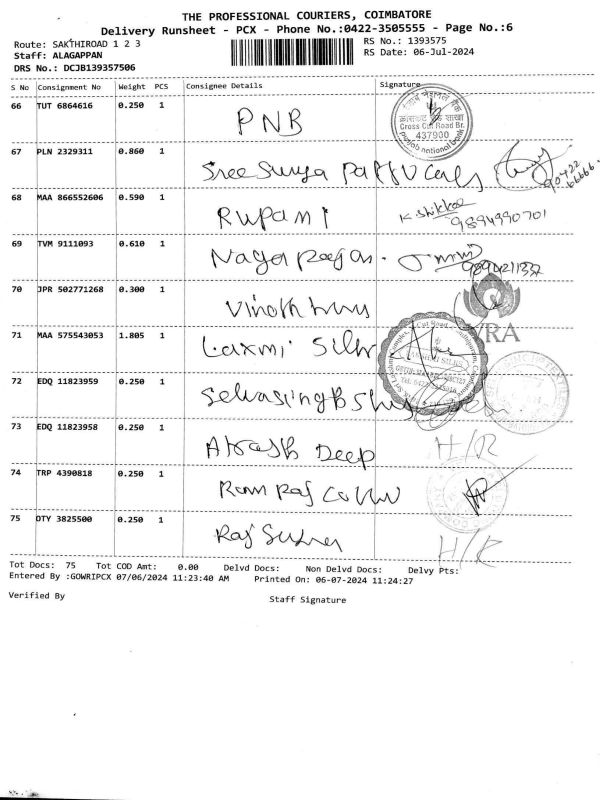 THE PROFESSIONAL COURIERS, COIMBATORE
Delivery Runsheet - PCX - Phone No.:0422-3505555 - Page No.:6
Route: SAKTHIROAD 1 2 3
RS No.: 1393575
Staff: ALAGAPPAN
RS Date: 06-Jul-2024
DRS No.: DCJB139357506
S No Consignment No Weight PCS Consignee Details Signature
66 TUT 6864616 0.250 1 PNB
Cross Cut Road Br.
437900
punjab national bank
67 PLN 2329311 0.860 1 Sree Surya
68 MAA 866552606 0.590 1 Rupani 9894990701
69 TVM 9111093 0.610 1 Nagarajan
70 JPR 502771268 0.300 1 Vinoth
VRA
71 MAA 575543053 1.805 1 Laxmi Silk
72 EDQ 11823959 0.250 1
73 EDQ 11823958 0.250 1 Akash Deep H/R
74 TRP 4390818 0.250 1 Ram Raj
75 OTY 3825500 0.250 1 Raj H/R
Tot Docs: 75 Tot COD Amt: 0.00 Delvd Docs: Non Delvd Docs: Delvy Pts:
Entered By :GOWRIPCX 07/06/2024 11:23:40 AM Printed On: 06-07-2024 11:24:27
Verified By Staff Signature